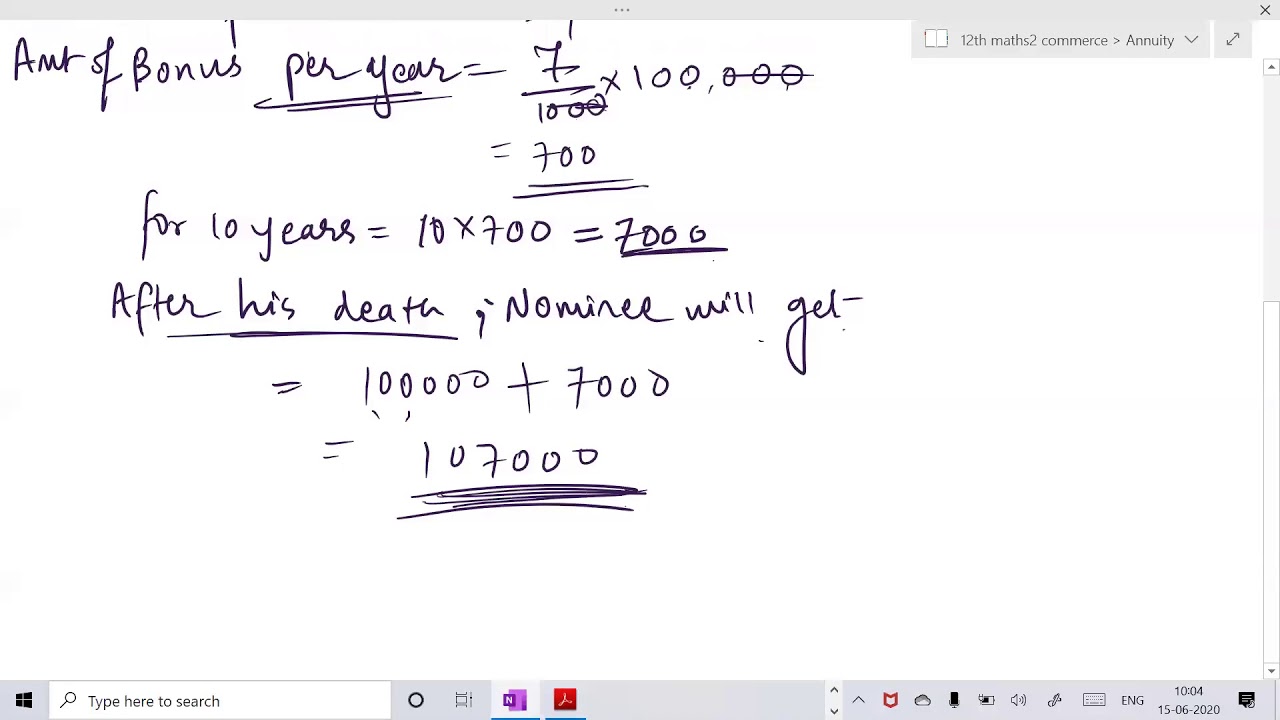 12th maths2 commerce > Annuity
Amt of Bonus per year = 7/1000 × 100,000
= 700
for 10 years = 10 × 700 = 7000
After his death ; Nominee will get
= 100000 + 7000
= 107000
Type here to search
ENG
10:04
15-06-2020